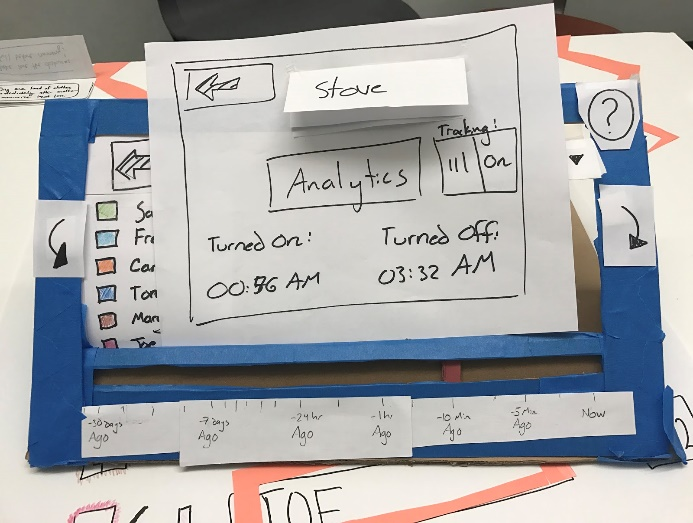 Stove
?
Tracking:
On
Analytics
Turned On:
Turned Off:
00:56 AM
03:32 AM
Sa
Fr
Car
Tom
Man
Joe
-30 Days
Ago
-7 Days
Ago
-24 hr
Ago
-1 hr
Ago
-10 Min
Ago
-5 Min
Ago
Now
2
JOE